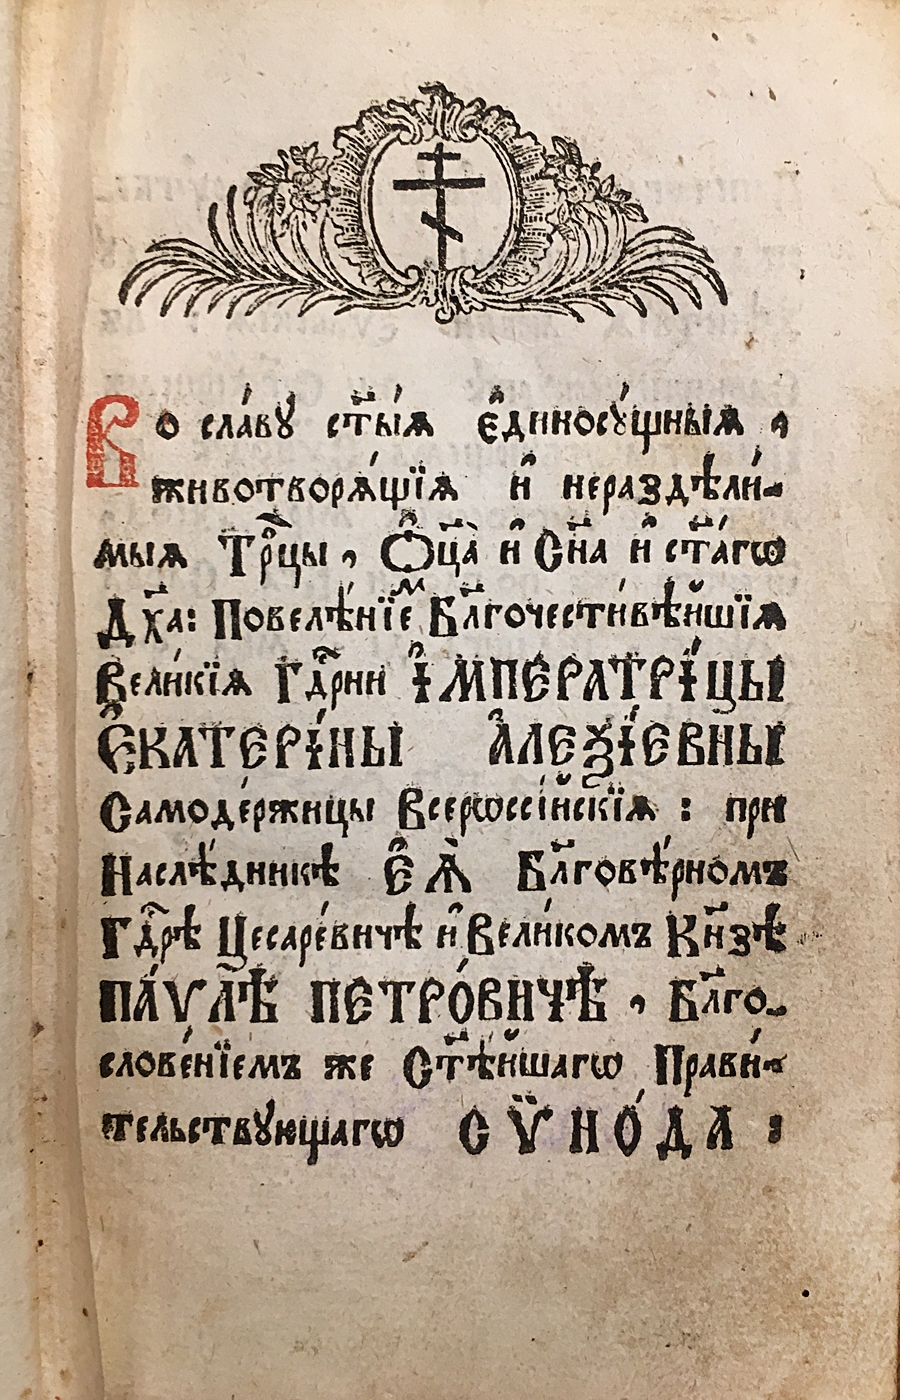 Во сла́вꙋ ст҃ы́ѧ є҆диносꙋ́щныѧ ,
животворѧ́щїѧ и҆ нераздѣли́-
мыѧ Трⷪ҇цы , Ѻ҆ц҃а̀ и҆ Сн҃а и҆ ст҃а́гѡ
Дх҃а: Повелѣ́нїеⷨ Бл҃гочести́вѣйшїѧ
Вели́кїѧ Гдⷭ҇рни И҆МПЕРАТРИ́ЦЫ
Є҆КАТЕРИ́НЫ А҆ЛЕѮІ́ЕВНЫ
Самоде́ржицы Всерѡссі́йскїѧ : при
Наслѣ́дникѣ Є҆Ѧ̀ Бл҃говѣ́рномъ
Гдⷭ҇рѣ Цесаре́вичѣ и҆ Вели́комъ Кн҃зѣ
ПА́ѴЛѢ ПЕТРО́ВИЧѢ , Бл҃го-
слове́нїемъ же Ст҃ѣ́йшагѡ Прави́-
тельствꙋющагѡ СѴ̈НО́ДА :